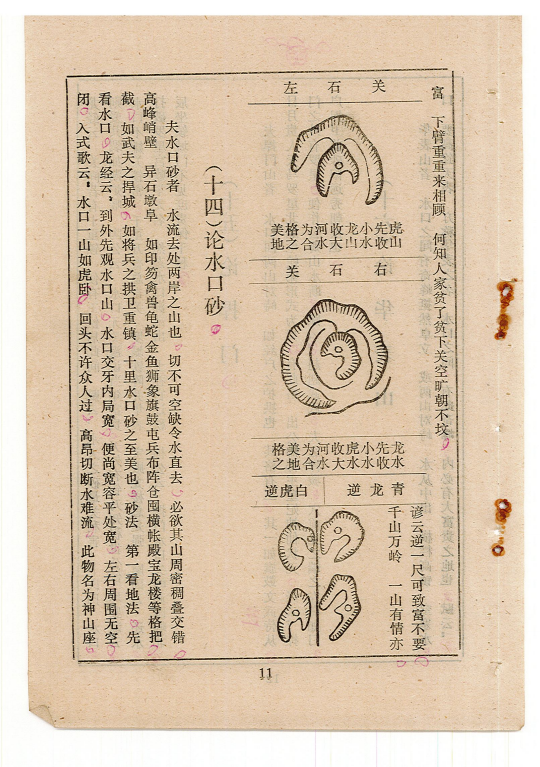 富 下臂重重来相顾 何知人家贫了贫下关空旷朝不坟。
左石关
虎山先收小水龙山收大河水为合格之美地
右石关
龙水先收小水虎水收大河水为合美地格之
青龙逆
白虎逆
谚云逆一尺可致富不要
千山万岭 一山有情亦
(十四)论水口砂。
夫水口砂者 水流去处两岸之山也。切不可空缺令水直去。必欲其山周密稠叠交错
高峰峭壁 异石墩阜 如印笏禽兽龟蛇金鱼狮象旗鼓屯兵布阵仓囤横帐殿宝龙楼等格把
截。如武夫之捍城。如将兵之拱卫重镇。十里水口砂之至美也。砂法 第一看地法。先
看水口。龙经云。到外先观水口山。水口交牙内局宽。便尚宽容平处宽。左右周围无空
闭。入式歌云。水口一山如虎卧。回头不许众人过。高昂切断水难流。此物名为神山座。
11